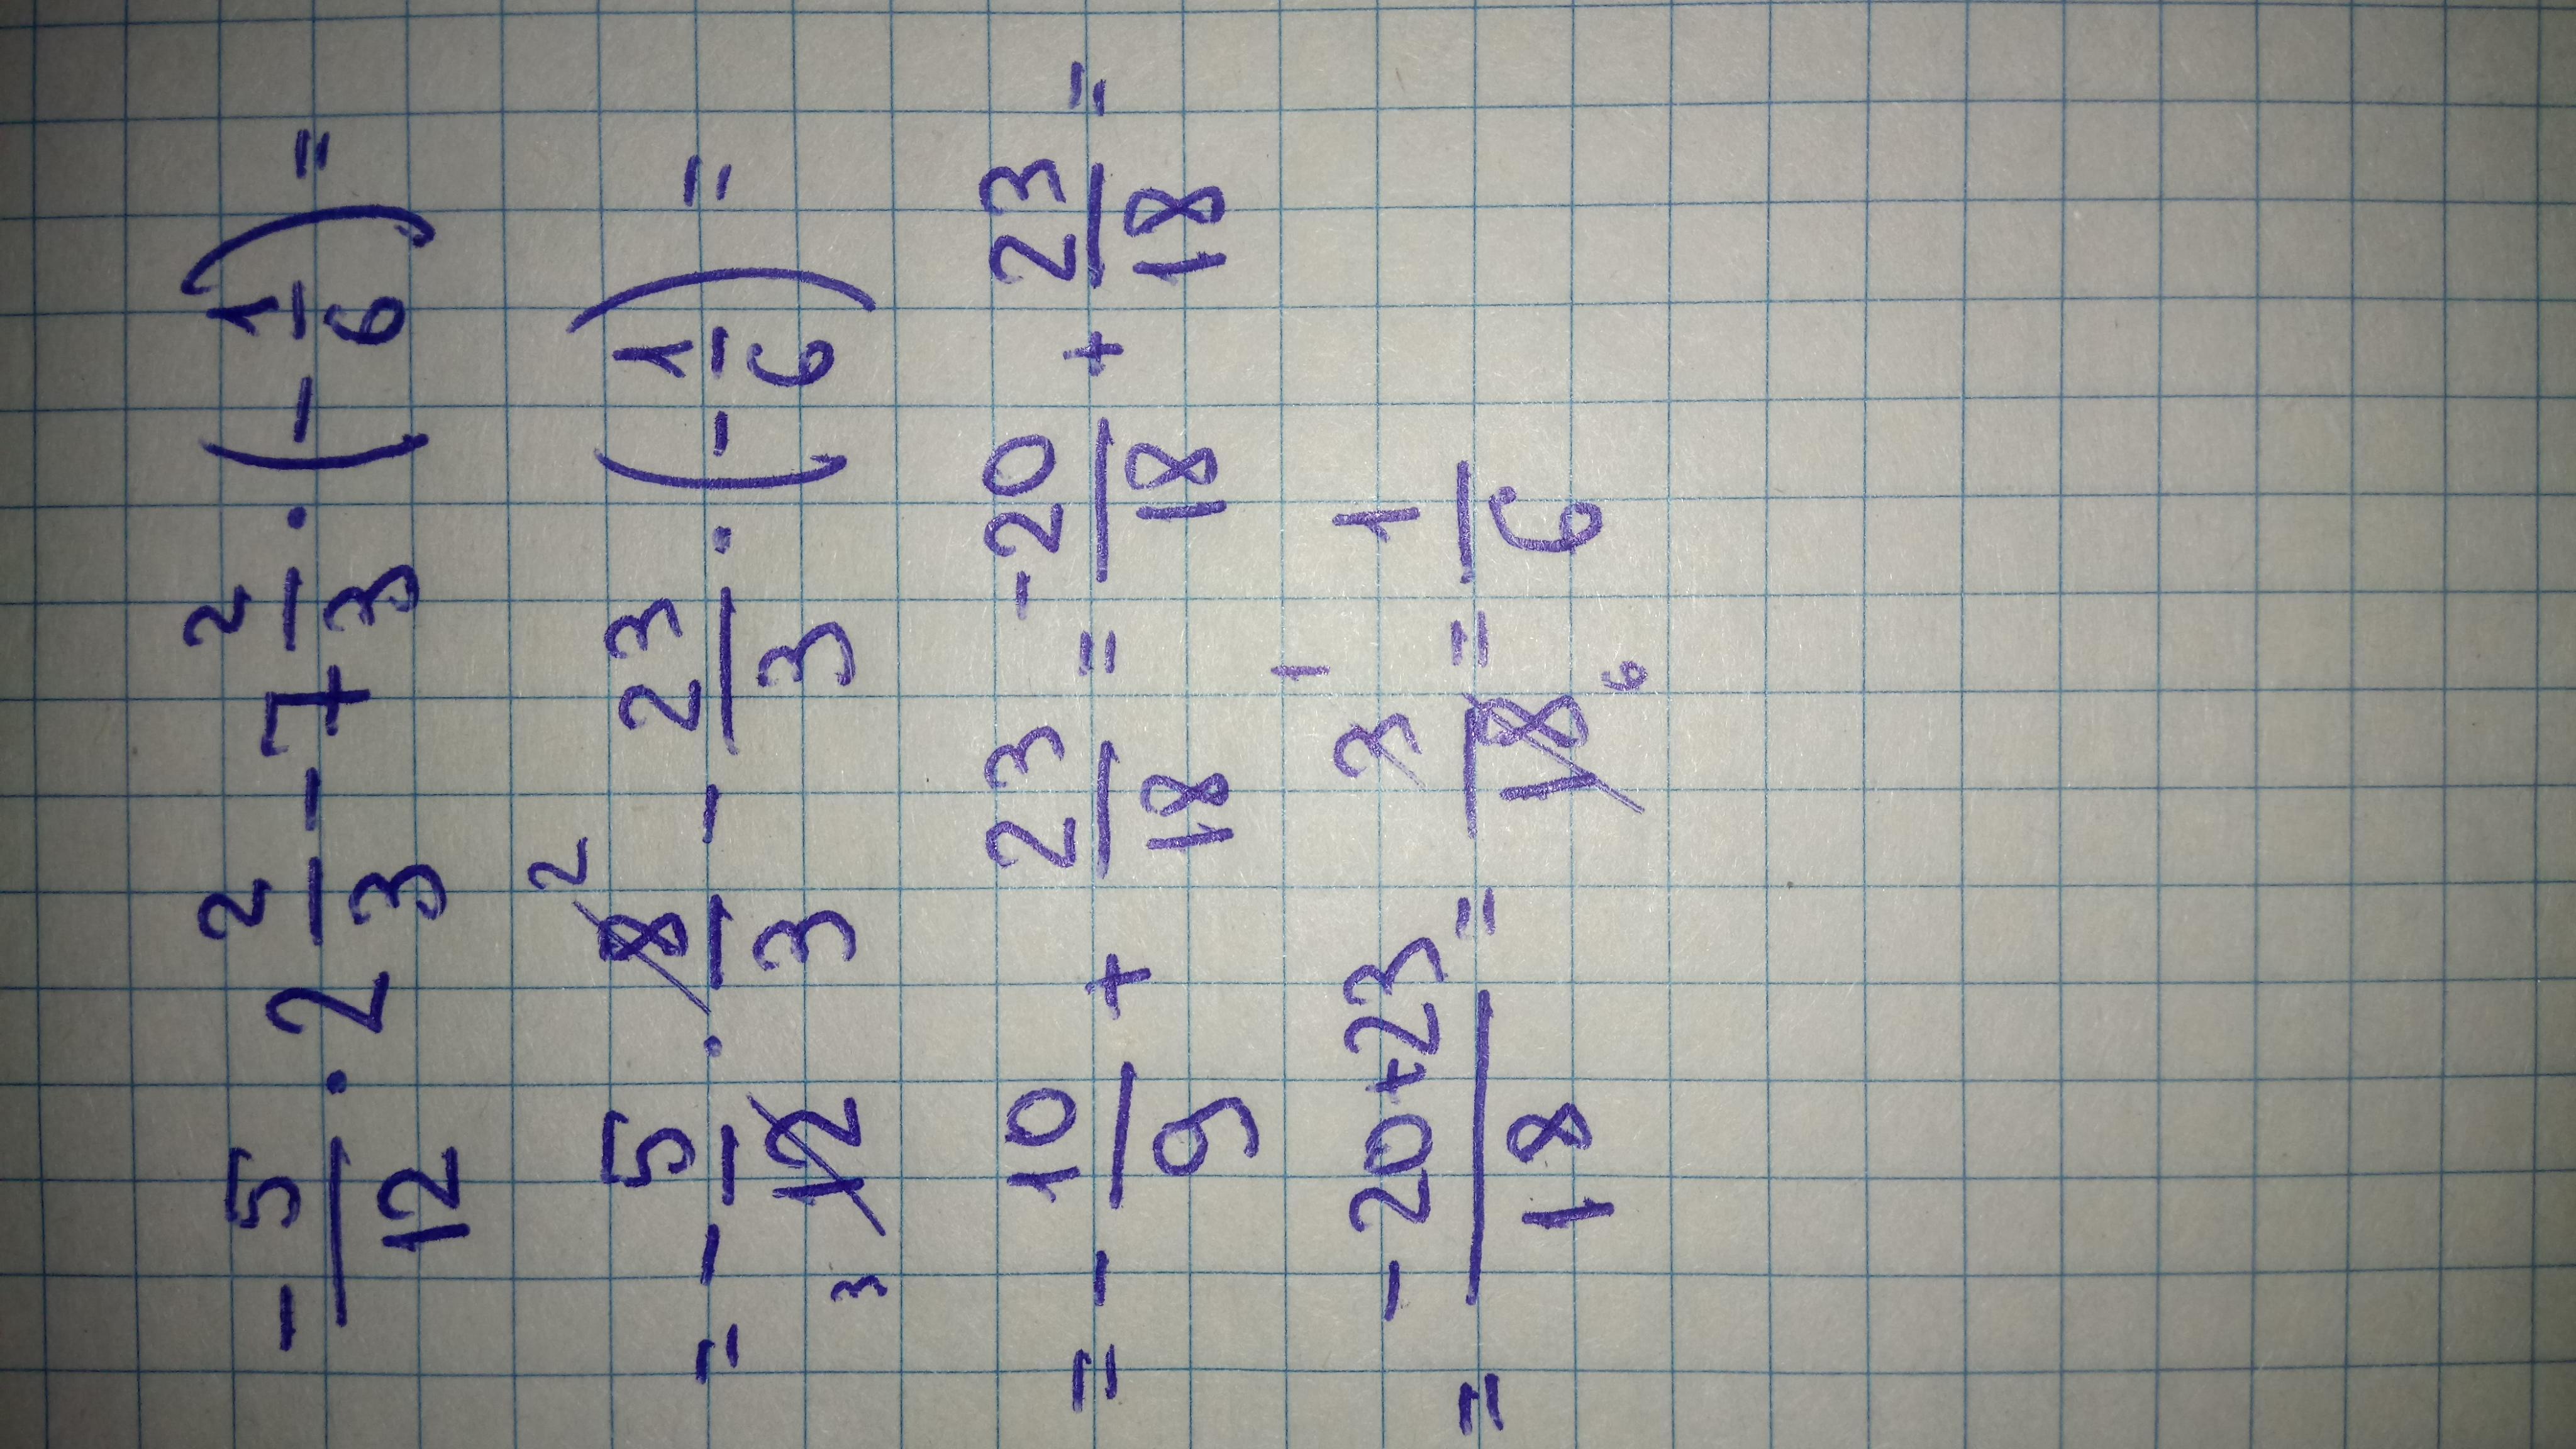 -5/12 · 2 2/3 - 7 2/3 · (-1/6) =
= -5/12 3 · 8/3 2 - 23/3 · (-1/6) =
= -10/9 + 23/18 = -20/18 + 23/18 =
= -20+23/18 = 3/18 1 6 = 1/6